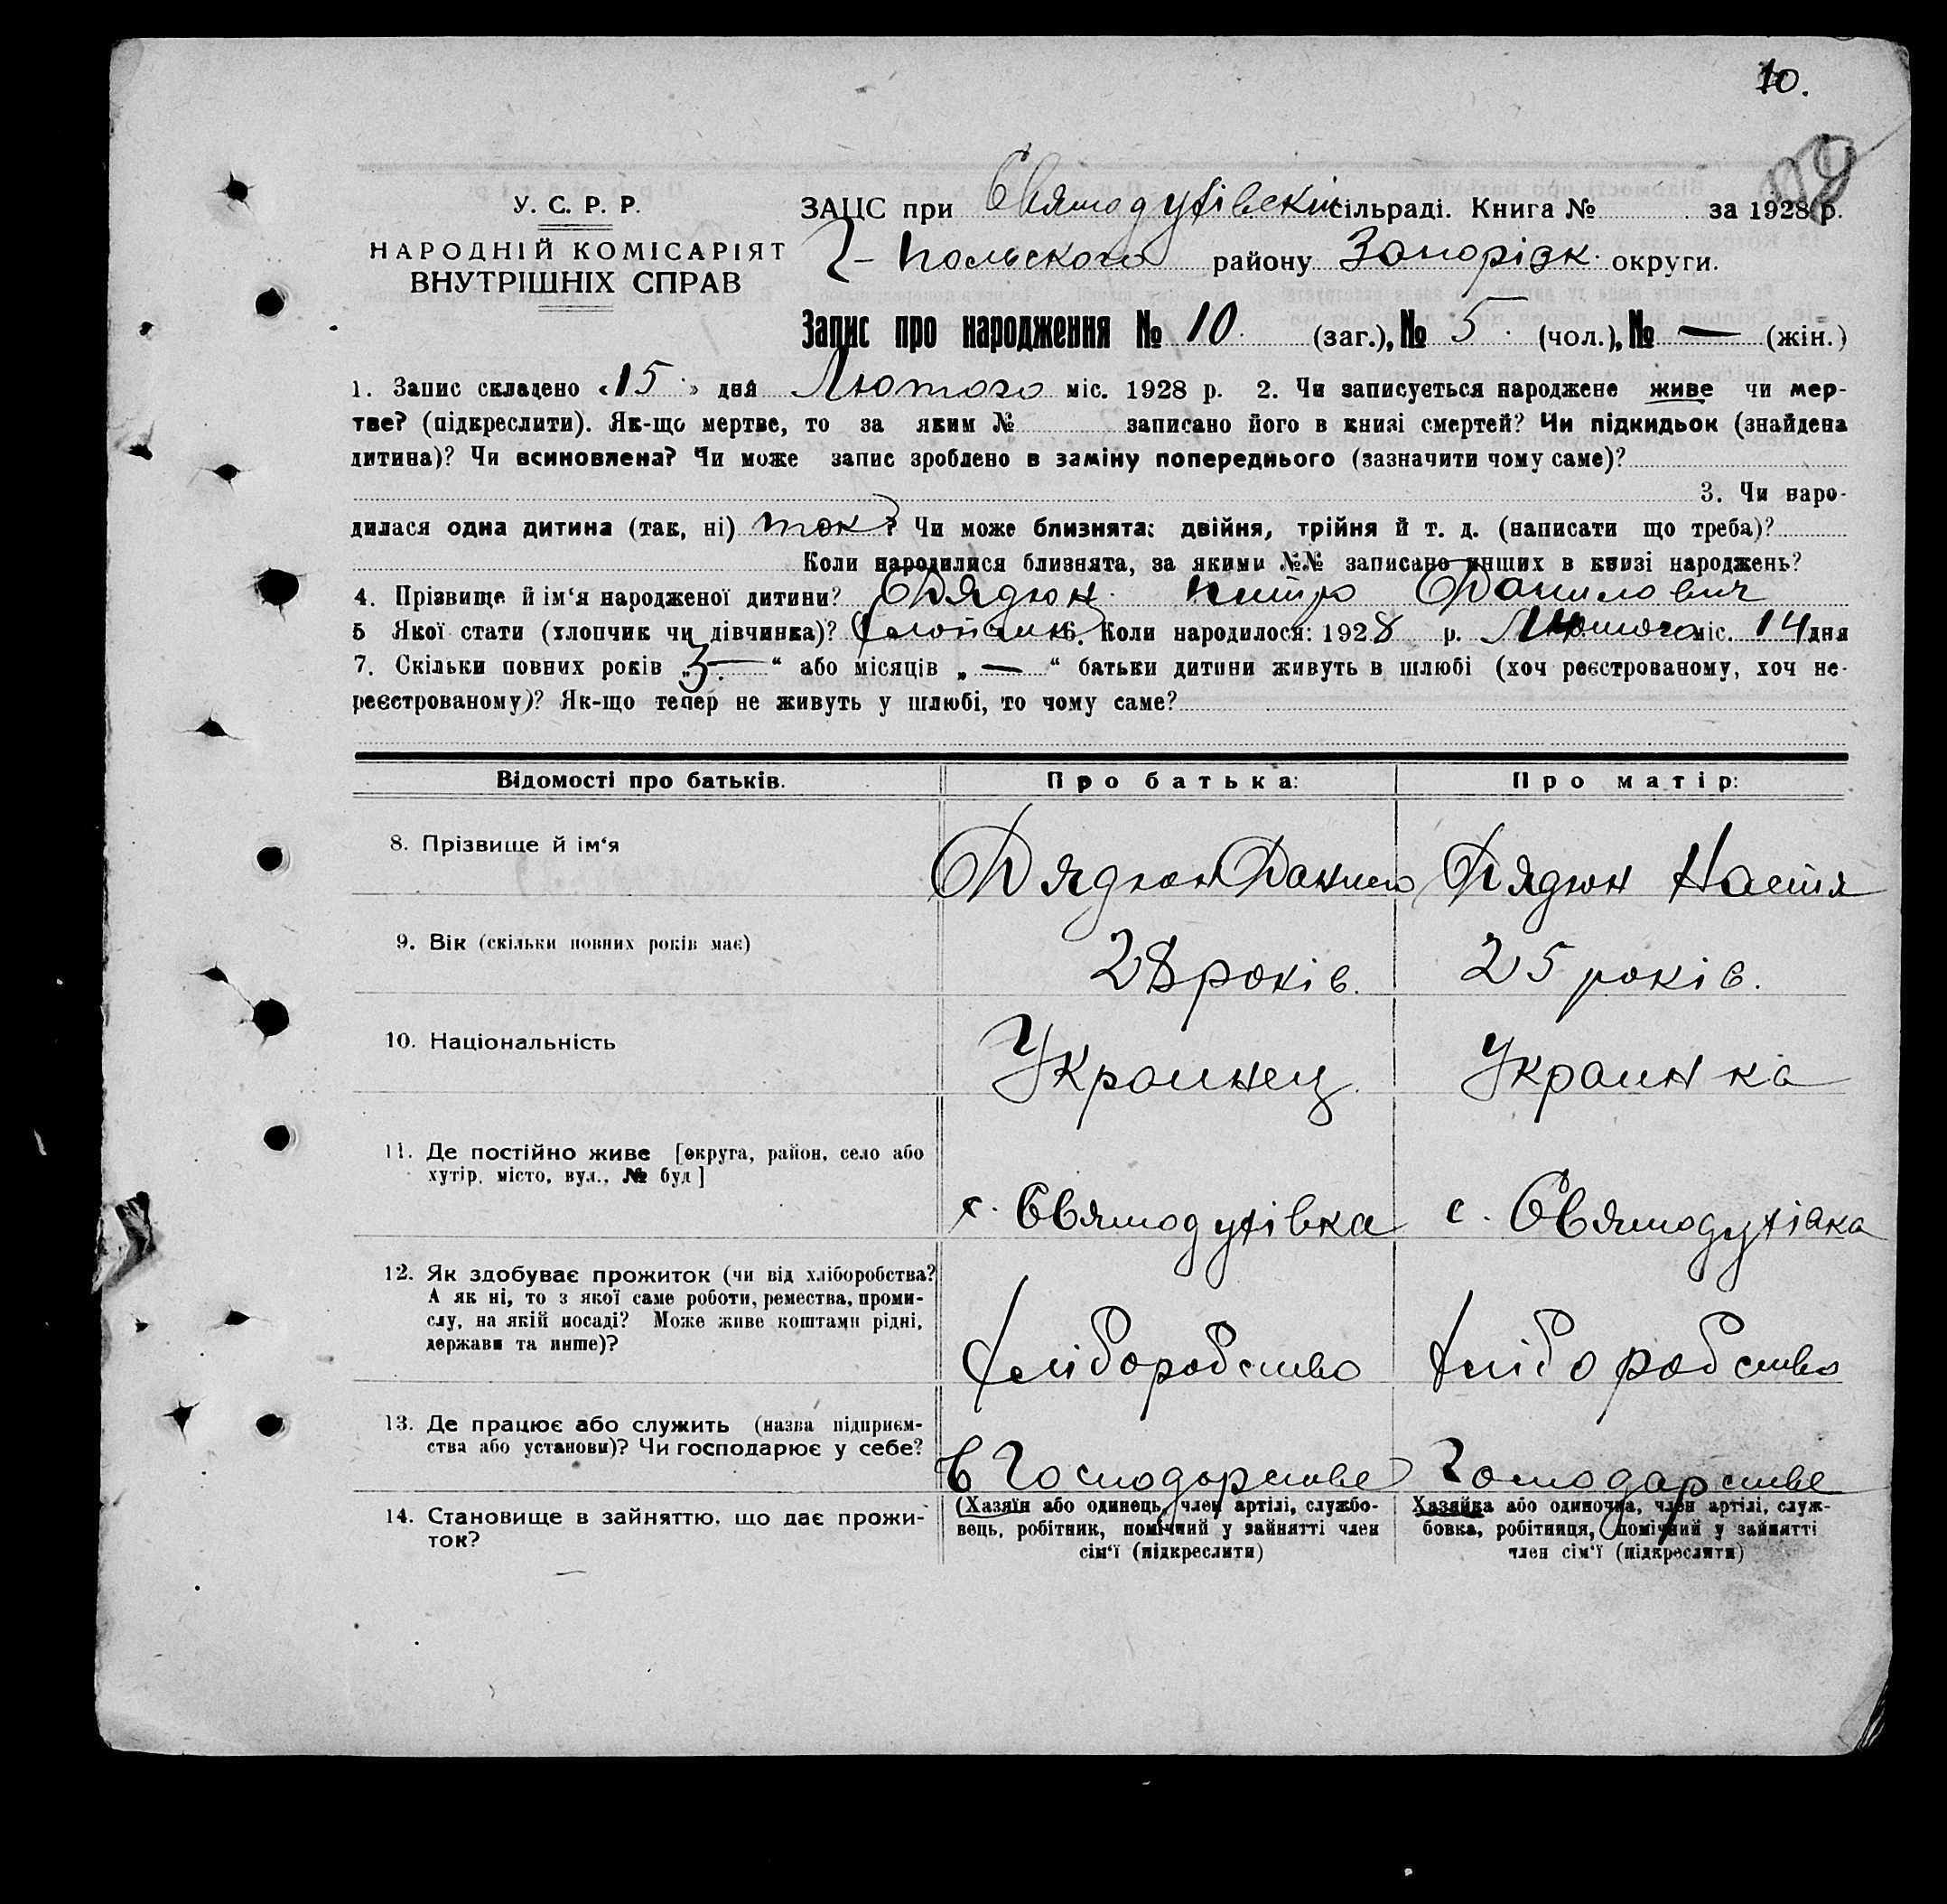 10.
У. С. Р. Р.
НАРОДНІЙ КОМІСАРІЯТ
ВНУТРІШНІХ СПРАВ
ЗАЦС при Святодухівскій сільраді. Книга № за 1928 р.
Г-Польского району Запорізк. округи.
Запис про народження № 10. (заг.), № 5. (чол.), № — (жін.)
1. Запис складено «15» дня Лютого міс. 1928 р. 2. Чи записується народжене живе чи мер-
тве? (підкреслити). Як-що мертве, то за яким № записано його в книзі смертей? Чи підкидьок (знайдена
дитина)? Чи всиновлена? Чи може запис зроблено в заміну попереднього (зазначити чому саме)?
3. Чи наро-
дилася одна дитина (так, ні) так? Чи може близнята: двійня, трійня й т. д. (написати що треба)?
Коли народилися близнята, за якими №№ записано инших в книзі народжень?
4. Прізвище й ім‘я народженої дитини? Дядюн Петро Данилович
5 Якої стати (хлопчик чи дівчинка)? Хлопчик 6. Коли народилося: 1928 р. Лютого міс. 14 дня
7. Скільки повних років „3—“ або місяців „—“ батьки дитини живуть в шлюбі (хоч реєстрованому, хоч не-
реєстрованому)? Як-що тепер не живуть у шлюбі, то чому саме?
Відомості про батьків. Про батька: Про матір:
8. Прізвище й ім‘я Дядюн Данило Дядюн Настя
9. Вік (скільки повних років має) 28 років. 25 років.
10. Національність Украинец Украинка
11. Де постійно живе [округа, район, село або
хутір, місто, вул., № буд]
с. Святодухівка с. Святодухівка
12. Як здобуває прожиток (чи від хліборобства?
А як ні, то з якої саме роботи, ремества, проми-
слу, на якій посаді? Може живе коштами рідні,
держави та инше)?
Хліборобство Хліборобство
13. Де працює або служить (назва підприєм-
ства або установи)? Чи господарює у себе?
в Господарстве Господарстве
14. Становище в зайняттю, що дає прожи-
ток?
(Хазяїн або одинець, член артілі, службо-
вець, робітник, помічний у зайнятті член
сім‘ї (підкреслити)
Хазяйка або одиночка, член артілі, служ-
бовка, робітниця, помічний у зайнятті
член сім‘ї (підкреслити)